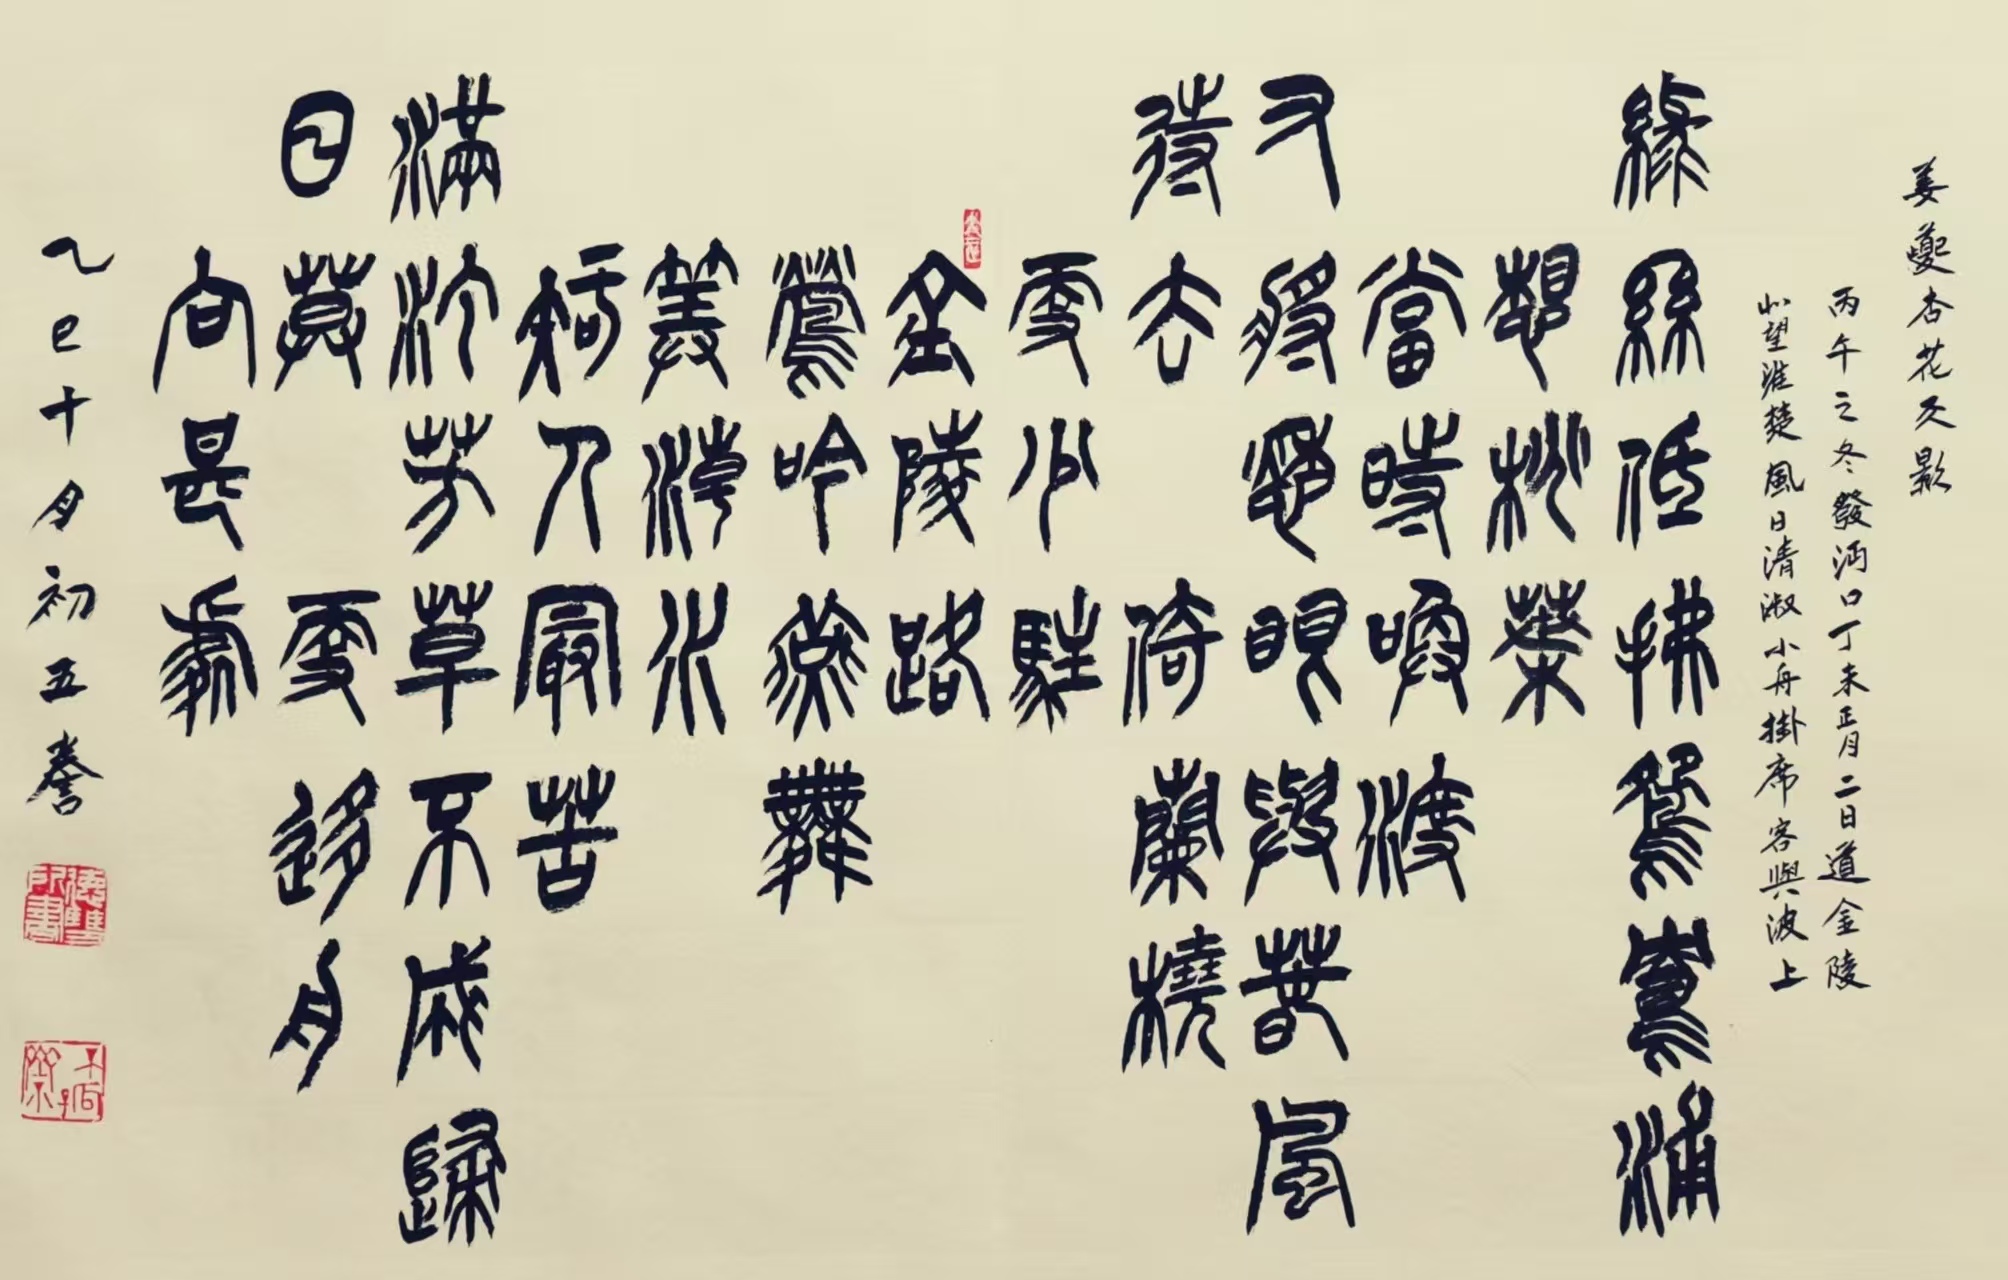 姜夔杏花天影
丙午之冬發沔口丁未正月二日道金陵
北望淮楚風日清淑小舟掛席容與波上
綠絲低拂鴛鴦浦
想桃葉
當時喚渡
又將愁眼與春風
待去倚蘭橈
更少駐
金陵路
鶯吟燕舞
算潮水
知人最苦
滿汀芳草不成歸
日暮更移舟
向甚處
乙巳十月初五誊